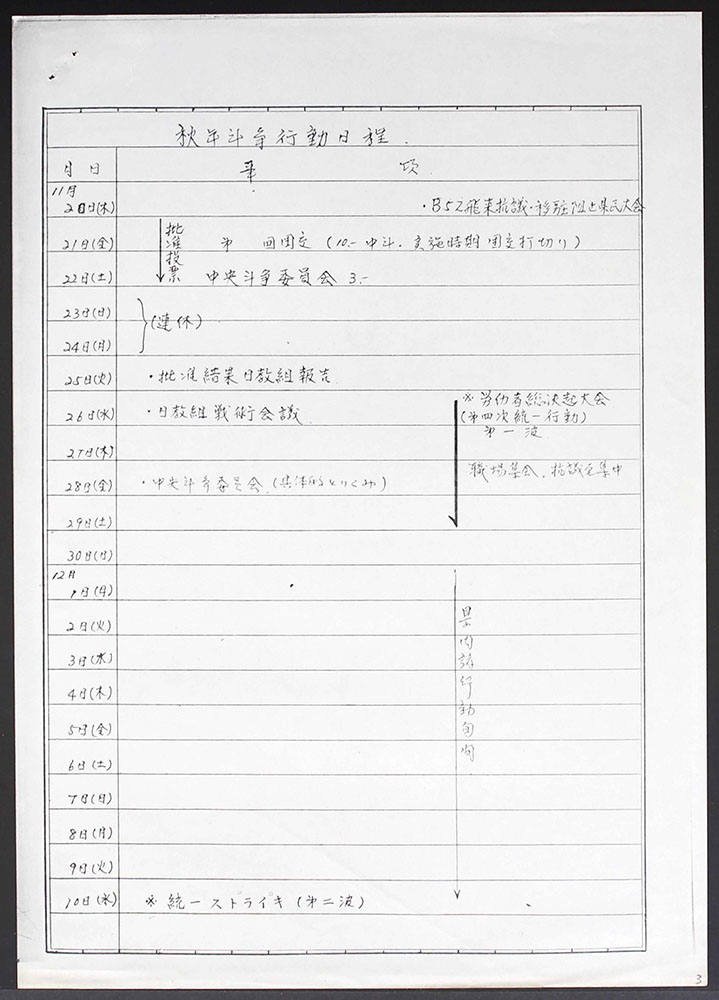 秋年斗争行動日程.
月 日 事 項
11月
20日(木) ・B52飛来抗議・移駐阻止県民大会
21日(金) 批准投票 第 回団交 (10.- 中斗. 実施時期 団交打切り)
22日(土) 中央斗争委員会 3.-
23日(日) (連休)
24日(月)
25日(火) ・批准結果日教組報告
26日(水) ・日教組戦術会議 ※労仂者総決起大会
(第四次統一行動)
第一波
27日(木)
職場集会. 抗議 集中
28日(金) ・中央斗争委員会 (具体的とりくみ)
29日(土)
30日(日)
12月
1日(月)
2日(火) 県内 行動旬間
3日(水)
4日(木)
5日(金)
6日(土)
7日(日)
8日(月)
9日(火)
10日(水) ※ 統一ストライキ (第二波)
3